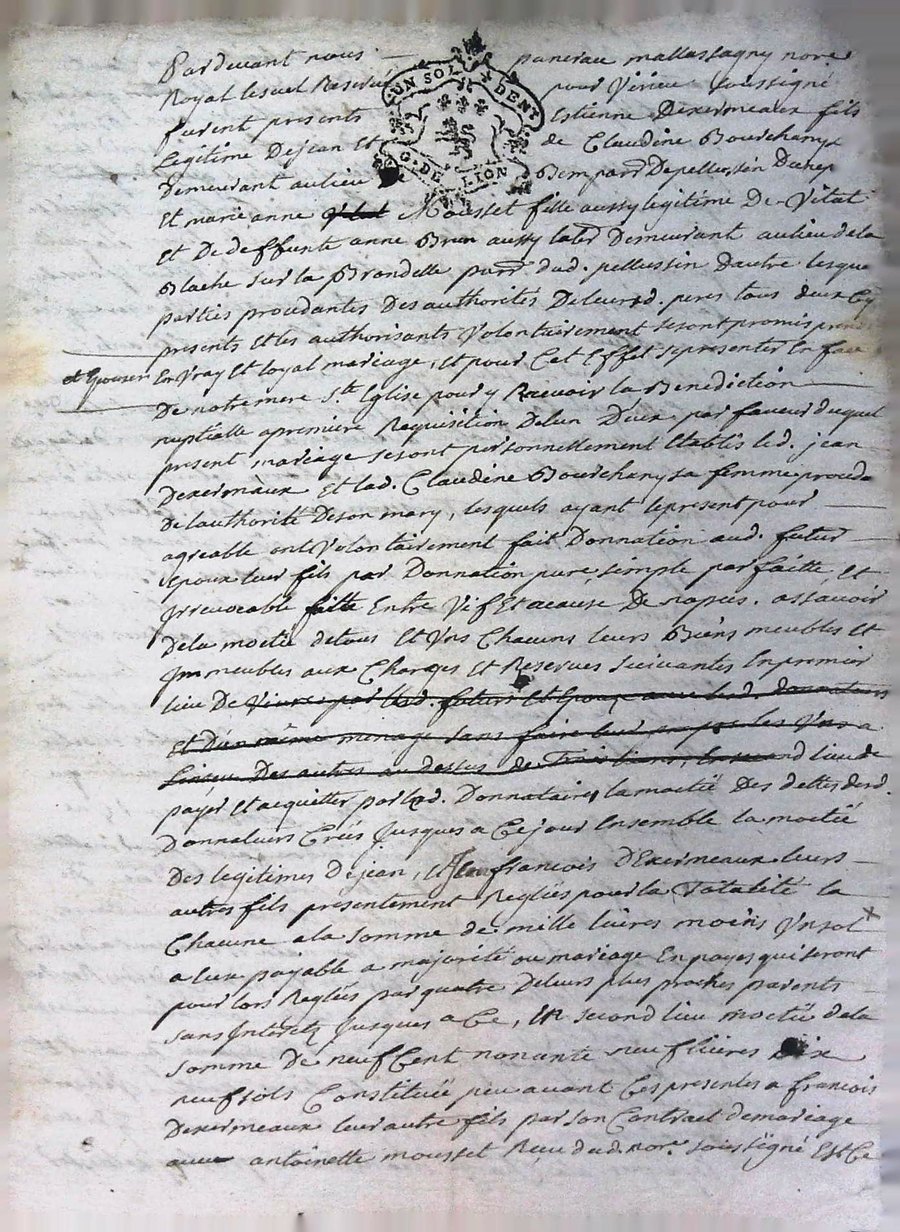 Pardevant nous pancrau mallassagny nore
Royal les uel Reservé pour Virieu soussigné
furent presents Estienne Dexermeaux fils
Legitime Dejean Et de Claudine Bourchany
Demeurant aulieu Bem parr Depellussin Dunep
Et marie anne Mousset fille aussy legitime De Vital
Et De deffunte anne Brun aussy labr Demeurant aulieu dela
Blache sur la Brandelle parr dud. pellussin Dautre lesque
parties procedantes Des authorités Deleursd. peres tous deux Cy
presents et les authorisants Volontairement se sont promis prendre
et Epouser En Vray Et loyal mariage, Et pour Cet Effet se presenter En face
De notre mere Ste Eglise pour y Recevoir la Benediction
nuptialle a premiere Requisition De lun Deux par faveur duquel
present mariage se sont personnellement Etablis led. jean
Dexermeaux Et lad. Claudine Bourchany sa femme proceda
De lauthorité De son mary, lesquels ayant le present pour
agreable ont Volontairement fait Donnation aud. futur
Epoux leur fils par Donnation pure, simple parfaitte Et
Irrevocable faitte Entre Vif Et acause De nopces. assavoir
De la moetié de tous Et Uns Chacuns leurs Biens meubles Et
Immeubles aux Charges Et Reserves suivantes En premier
lieu De Vivre par lesd. futurs Et Epoux avec lesd. donnateurs
Et D'un même menage sans faire les Uns a
Linsçu Des autres au dessus de En second lieu de
payer Et acquitter parled. Donnataire la moetié Des dettes desd.
Donnateurs Crées Jusques a Ce jour Ensemble la moetié
Des legitimes De jean, Et francois DExermeaux leurs
autres fils presentement Reglées pour la Totalité la
Chacune a la somme de mille livres moins Un sol
a Eux payable a majorité ou mariage En payes qui seront
pour lors Reglées par quatre De leurs plus proches parents
sans Interets Jusques a Ce, En second lieu moetié de la
somme De neuf Cent nonante neuf livres Dix
neuf sols Constituée peu avant Ces presentes a francois
Dexermeaux leur autre fils par son Contract de mariage
avec antoinette mousset Reçu dud. nore. soussigné Est Ce
UN SOL DEN
G. DE LION